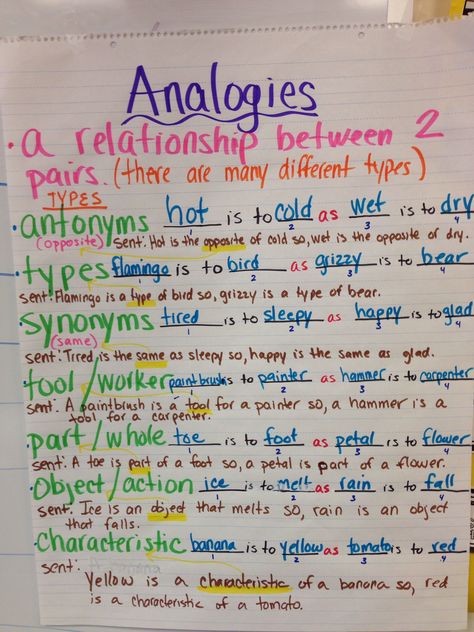 Analogies
• a relationship between 2
pairs. (there are many different types)
TYPES
• antonyms hot is to cold as wet is to dry
1 2 3 4
(opposite) sent: Hot is the opposite of cold so, wet is the opposite of dry.
• types flamingo is to bird as grizzy is to bear
1 2 3 4
sent: Flamingo is a type of bird so, grizzy is a type of bear.
• synonyms tired is to sleepy as happy is to glad
1 2 3 4
(same)
sent: Tired is the same as sleepy so, happy is the same as glad.
• tool/worker paintbrush is to painter as hammer is to carpenter
1 2 3 4
sent: A paintbrush is a tool for a painter so, a hammer is a
tool for a carpenter.
• part/whole toe is to foot as petal is to flower
1 2 3 4
sent: A toe is part of a foot so, a petal is part of a flower.
• Object/action ice is to melt as rain is to fall
1 2 3 4
sent: Ice is an object that melts so, rain is an object
that falls.
• Characteristic banana is to yellow as tomato is to red
1 2 3 4
sent:
Yellow is a characteristic of a banana so, red
is a characteristic of a tomato.